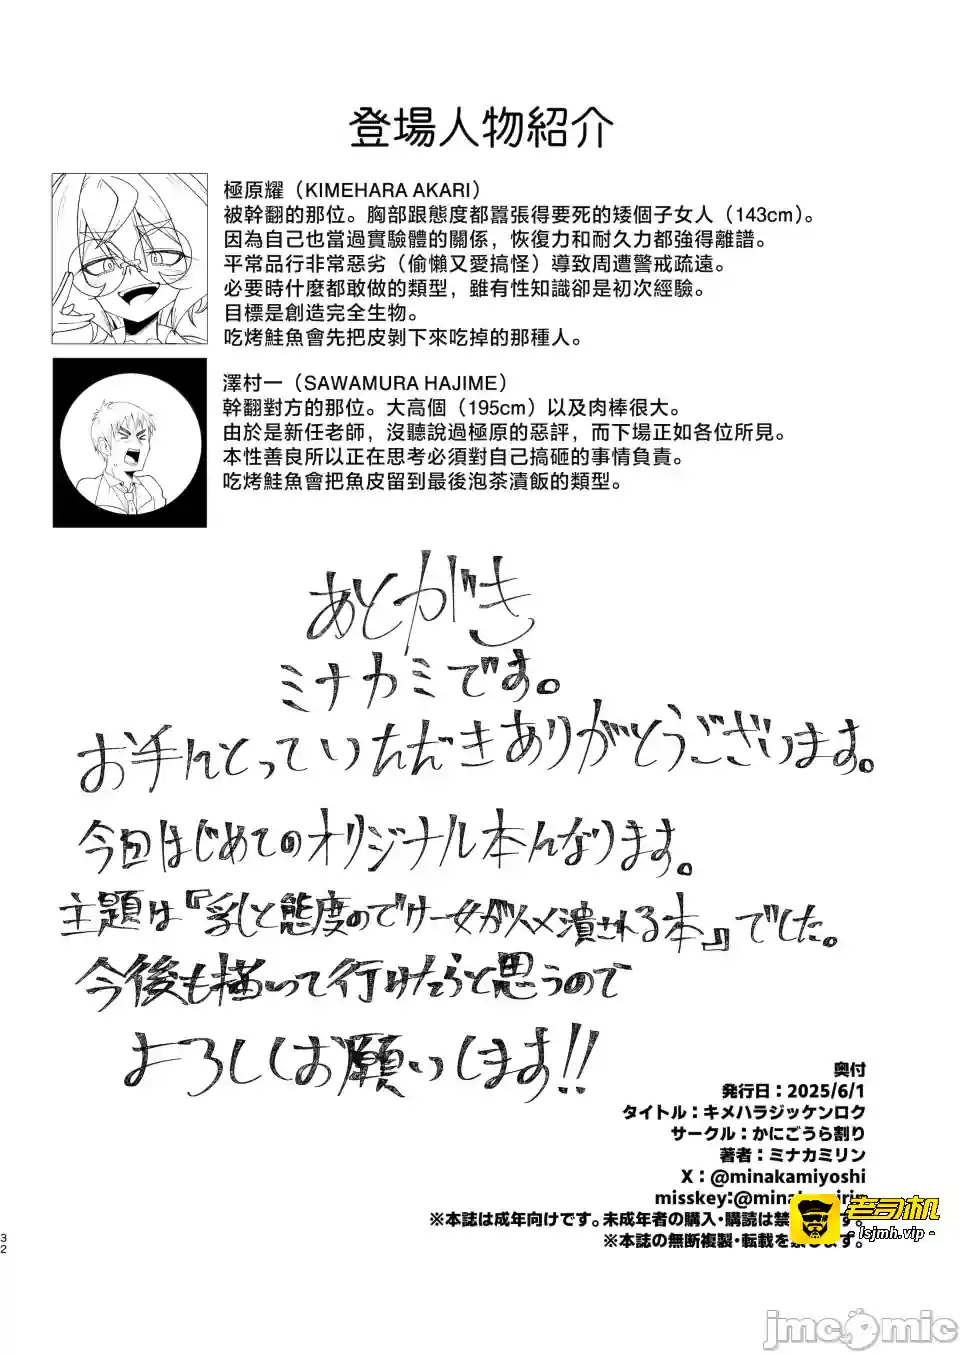 登場人物紹介
極原耀（KIMEHARA AKARI）
被幹翻的那位。胸部跟態度都囂張得要死的矮個子女人（143cm）。
因為自己也當過實驗體的關係，恢復力和耐久力都強得離譜。
平常品行非常惡劣（偷懶又愛搞怪）導致周遭警戒疏遠。
必要時什麼都敢做的類型，雖有性知識卻是初次經驗。
目標是創造完全生物。
吃烤鮭魚會先把皮剝下來吃掉的那種人。
澤村一（SAWAMURA HAJIME）
幹翻對方的那位。大高個（195cm）以及肉棒很大。
由於是新任老師，沒聽說過極原的惡評，而下場正如各位所見。
本性善良所以正在思考必須對自己搞砸的事情負責。
吃烤鮭魚會把魚皮留到最後泡茶漬飯的類型。
あとがき
ミナカミです。
お手にとっていただきありがとうございます。
今回はじめてのオリジナル本になります。
主題は『乳と態度のでけー女がハメ潰される本』でした。
今後も描いて行けたらと思うので
よろしくお願いします!!
奥付
発行日：2025/6/1
タイトル：キメハラジッケンロク
サークル：かにごうら割り
著者：ミナカミリン
X：@minakamiyoshi
misskey:@mina
※本誌は成年向けです。未成年者の購入・購読は禁 す。
※本誌の無断複製・転載を禁じます。
老司机
- lsjmh.vip -
32
jmcomic